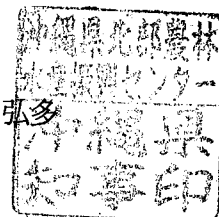 沖縄県北部農林
水産振興センター
弘多
沖縄県
知事印